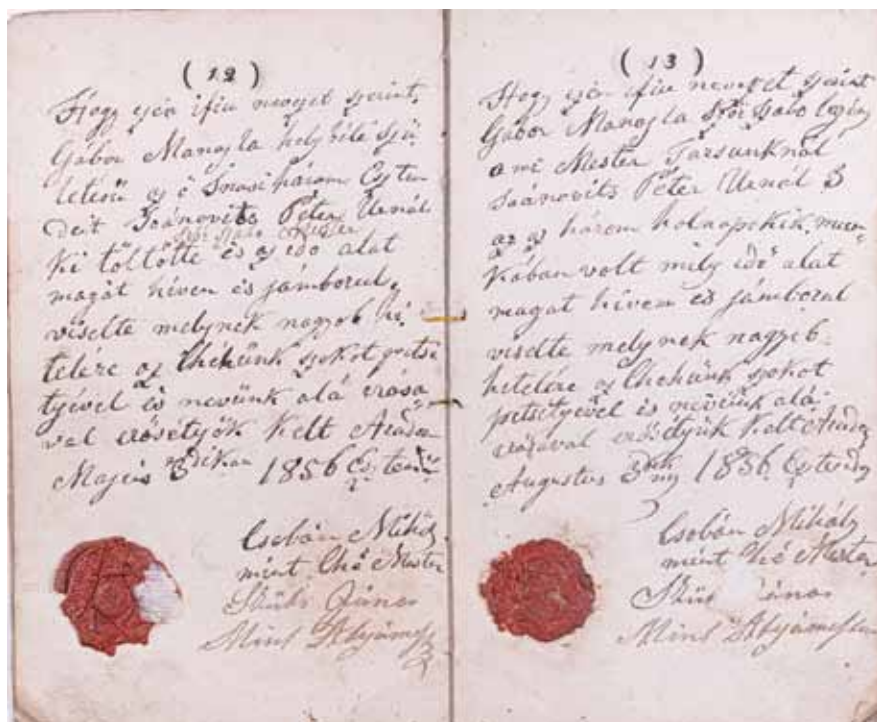 ( 12 )
Hogy ezen ifiu nevezet szerint
Gábor Manojla helybéli szü
letésü az ő Inasi három Eszten
deit Joánovits Péter Urnál
Szőr Szabo Mester
ki töltötte és az idő alat
magát híven és jámborul
viselte melynek nagyob hi
telére az Chehünk szokot petsé
tyével és nevünk alá irása
val erősétyök Kelt Aradon
Majus 3dikan 1856 Esztend
Csobán Mihály
mint Ché Mester
János
Mint Atyámester
( 13 )
Hogy ezen ifiu nevezet szerint
Gábor Manojla Szőr Szabo legény
a mi Mester Társunknál
Joánovits Péter Urnál 3
az az három holnapokik mun
kában volt mily idő alat
magat híven és jámborul
viselte melynek nagyob
hetelére az Chehünk szokot
petsétyével és nevünk alá
irásával erősétyük Kelt Aradon
Augustus 3 1856 Esztendő
Csobán Mihály
mint Ché Mester
Mint Atyámester